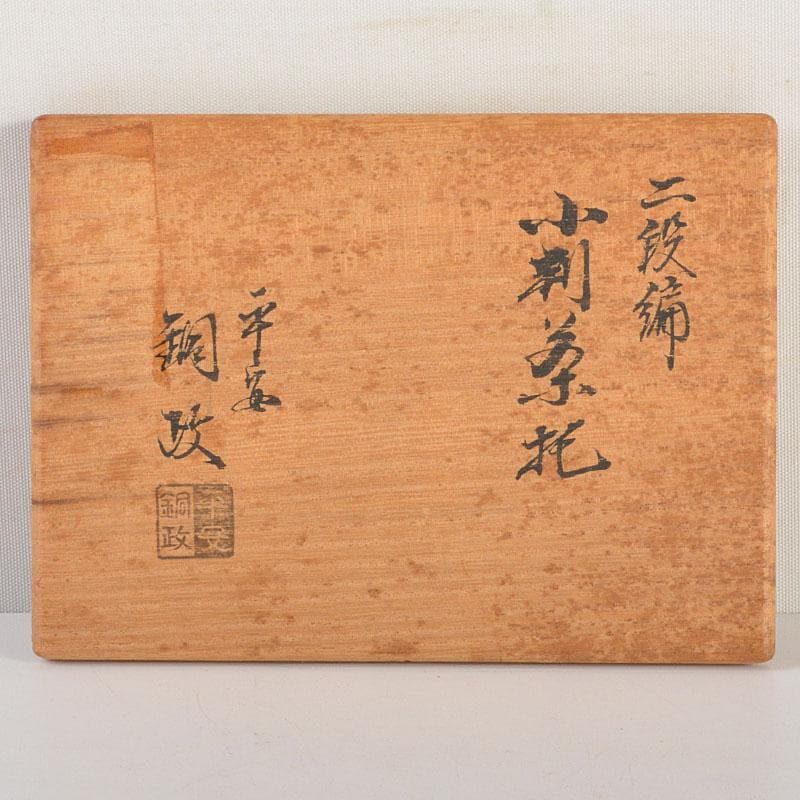 二段編
小判茶托
平安
銅政
平安
銅政